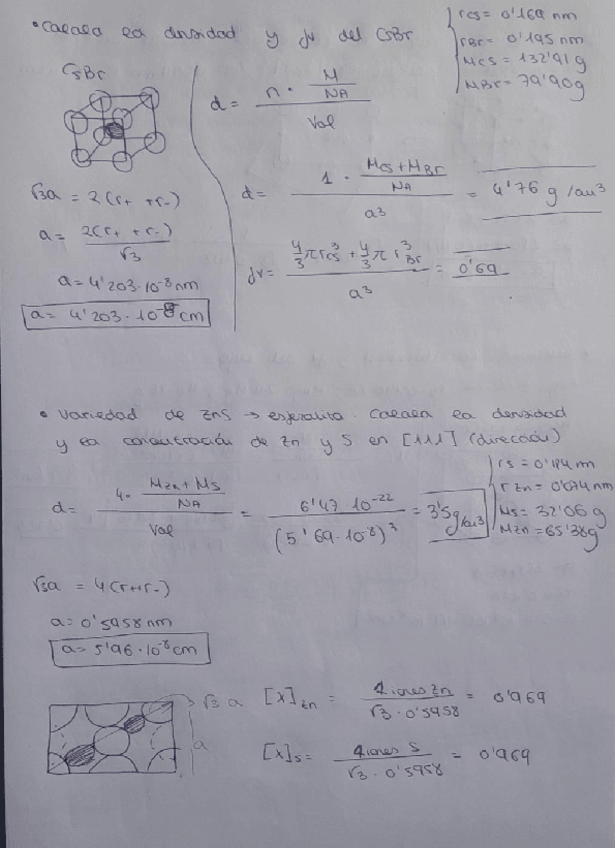 • Calcula la densidad y fv del CsBr
rCs = 0'169 nm
rBr = 0'195 nm
MCs = 132'91 g
MBr = 79'90 g
CsBr
√3a = 2(r+ + r-)
a = 2(r+ + r-) / √3
a = 4'203·10⁻⁸ nm
a = 4'203·10⁻⁸ cm
d = n · M/NA / Vol
d = 1 · MCs+MBr/NA / a³ = 4'76 g/cm³
fv = 4/3 π rCs³ + 4/3 π rBr³ / a³ = 0'69
• Variedad de ZnS → esfalerita. Calcula la densidad
y la concentración de Zn y S en [111] (dirección)
rS = 0'184 nm
r Zn = 0'074 nm
MS = 32'06 g
MZn = 65'38 g
d = 4· MZn+MS/NA / Vol = 6'47 10⁻²² / (5'69·10⁻⁸)³ = 3'5 g/cm³
√3a = 4(r+ + r-)
a = 0'5958 nm
a = 5'96·10⁻⁸ cm
√3 a
a
[X]Zn = 1 iones Zn / √3 · 0'5958 = 0'969
[X]S = 1 iones S / √3 · 0'5958 = 0'969